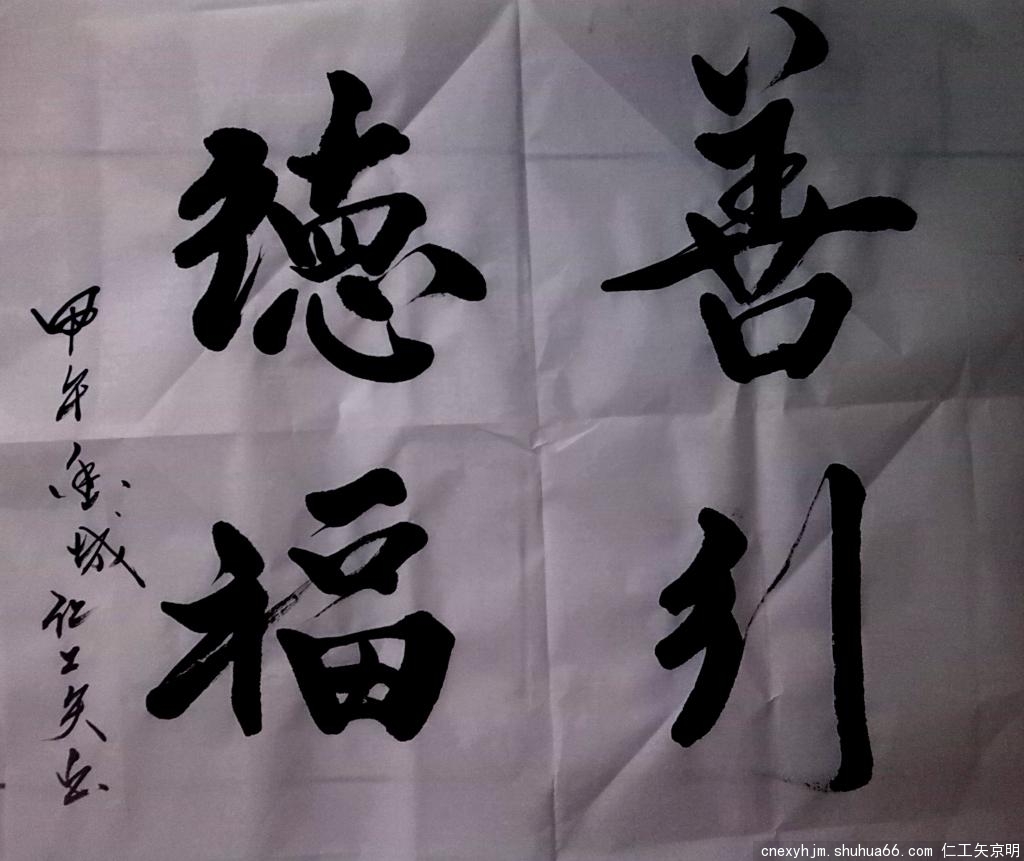 善引
德福
甲午金城仁工矢书
cnexyhjm.shuhua66.com 仁工矢京明